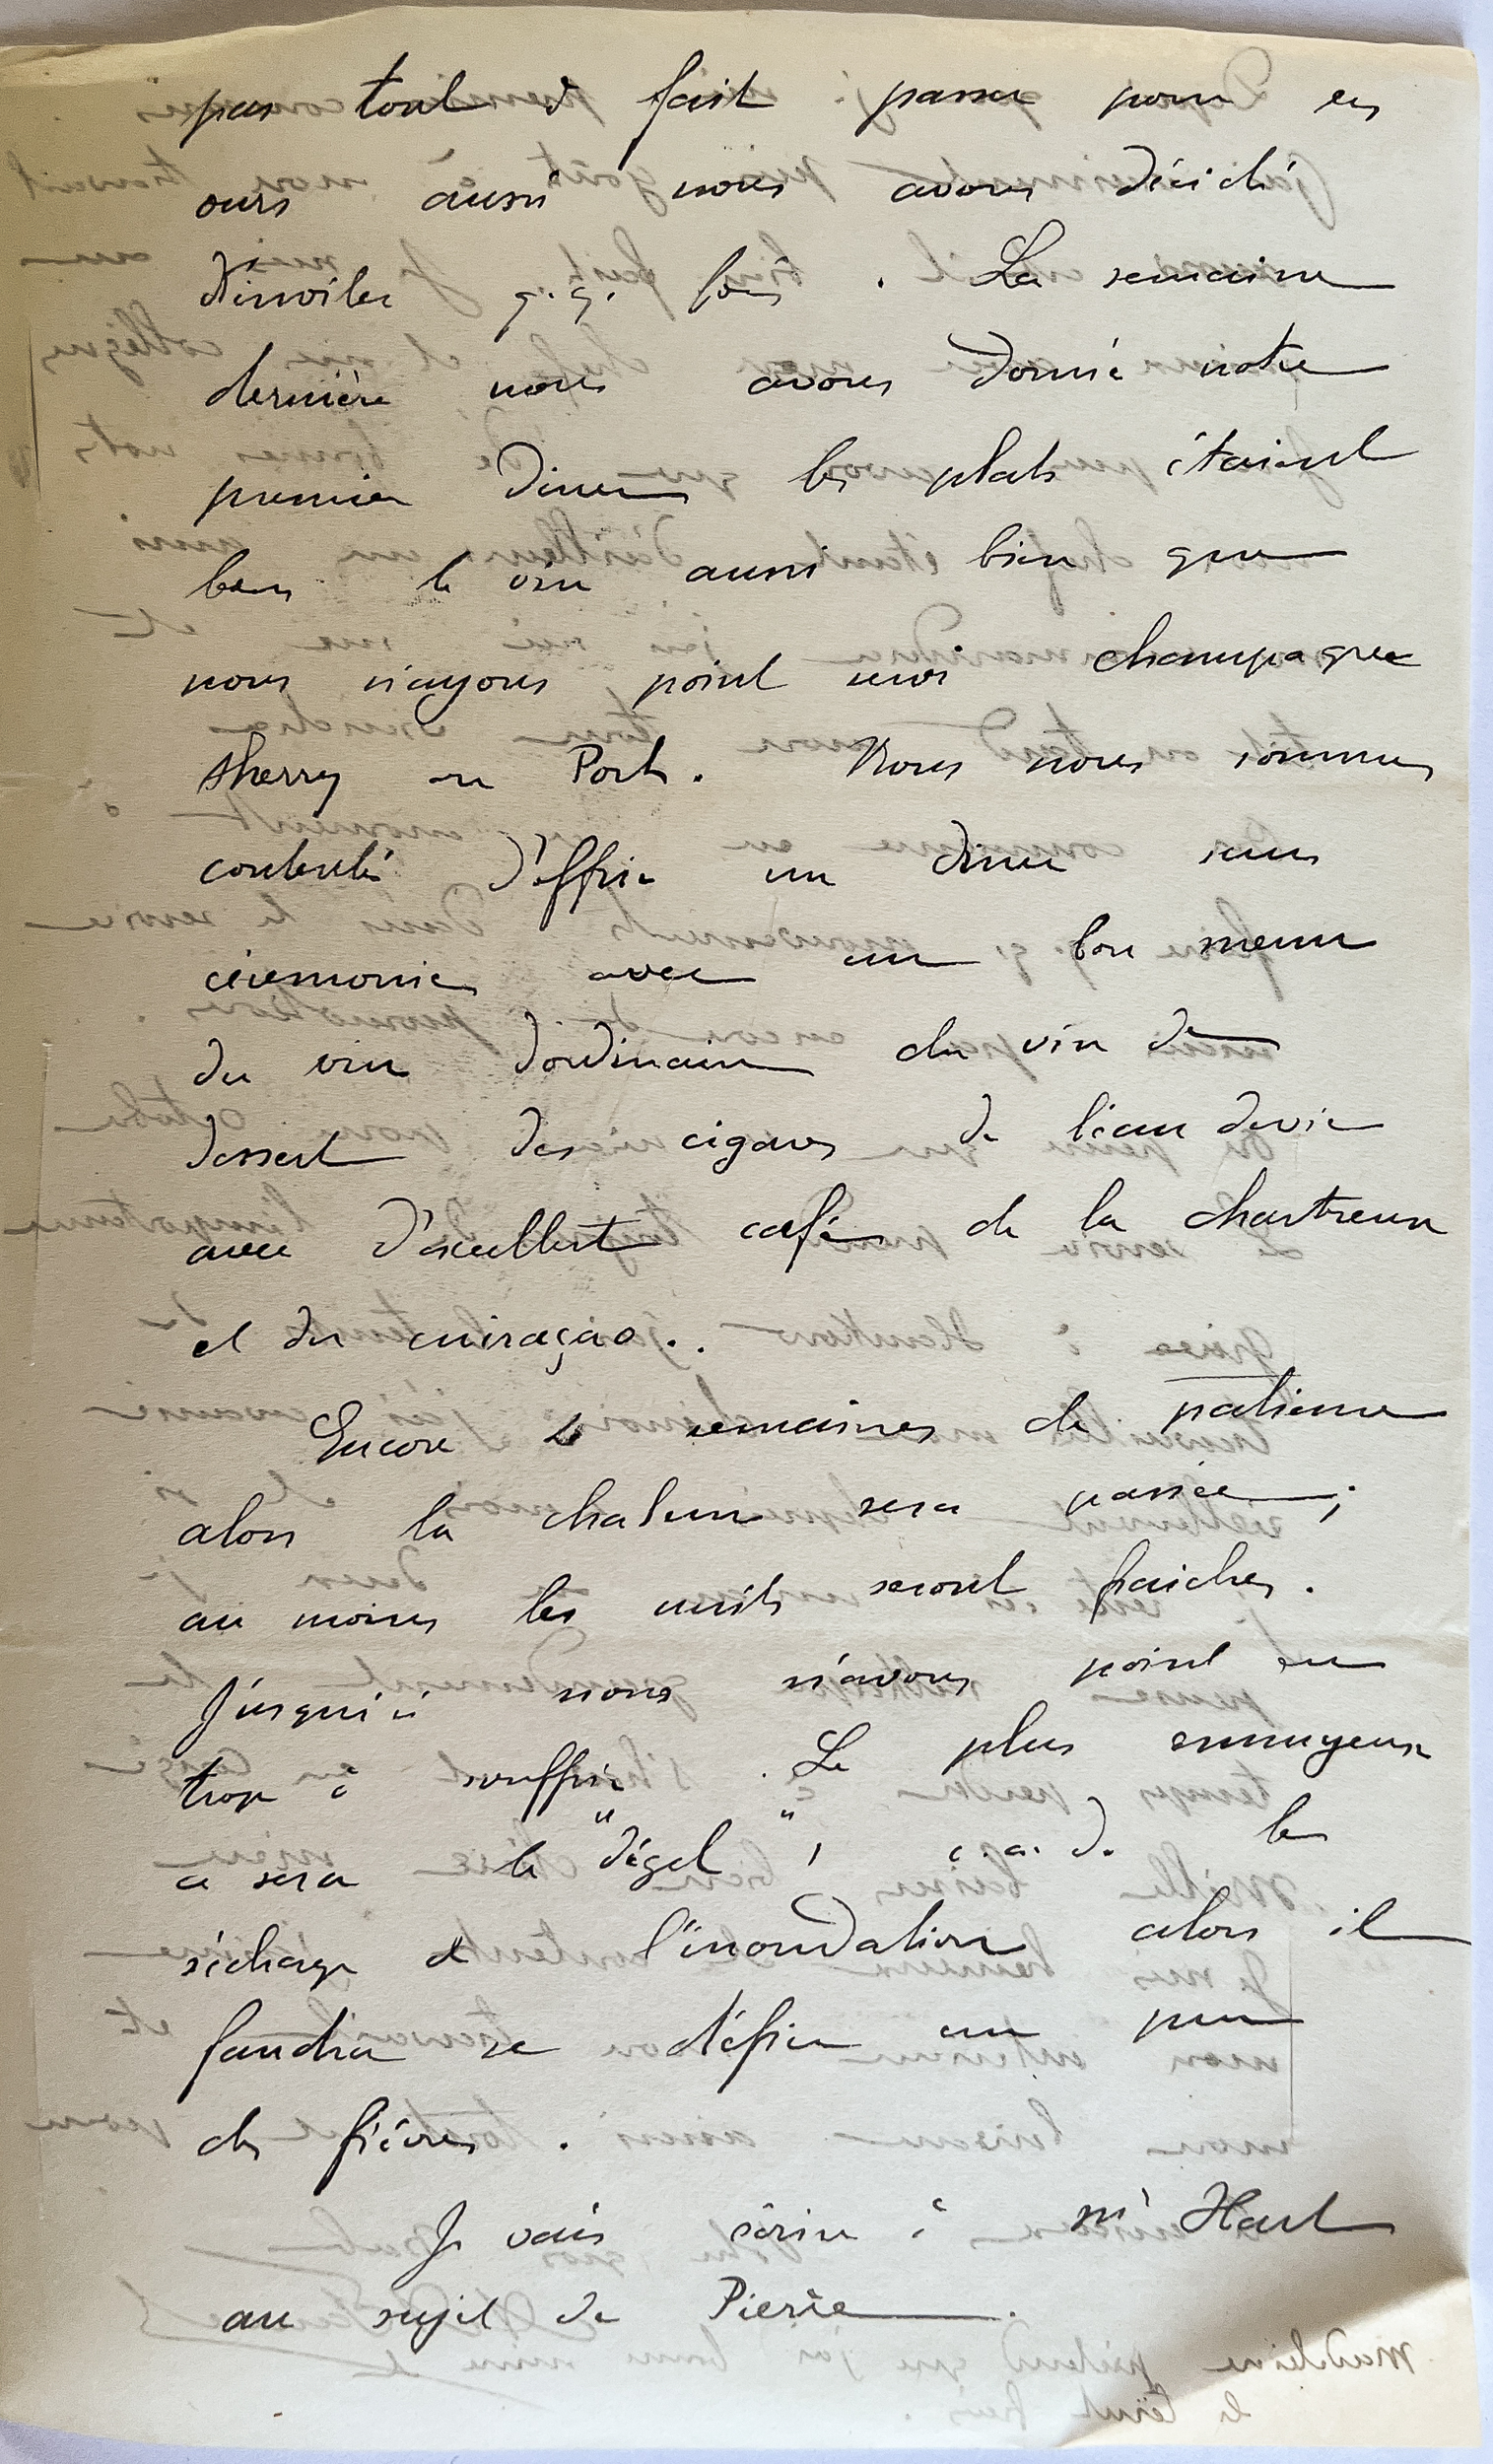 pas tout à fait passer pour des
ours aussi nous avons décidé
d'inviter q.q. fois. La semaine
dernière nous avons donné notre
premier diner les plats étaient
bons le vin aussi bien que
nous n'ayons point servi champagne
sherry ou Porto. Nous nous sommes
contentés d'offrir un diner sans
cérémonies avec un bon menu
du vin d'ordinaire du vin de
dessert des cigares de l'eau de vie
avec d'excellent café de la chartreuse
et du curaçao..
Encore 4 semaines de patience
alors la chaleur sera passée;
au moins les nuits seront fraiches.
Jusqu'ici nous n'avons point eu
trop à souffrir. Le plus ennuyeux
ce sera le "dégel", c.a.d. le
séchage de l'inondation alors il
faudra se défier un peu
des fièvres.
Je vais écrire à Mr Hart
au sujet de Pierre.